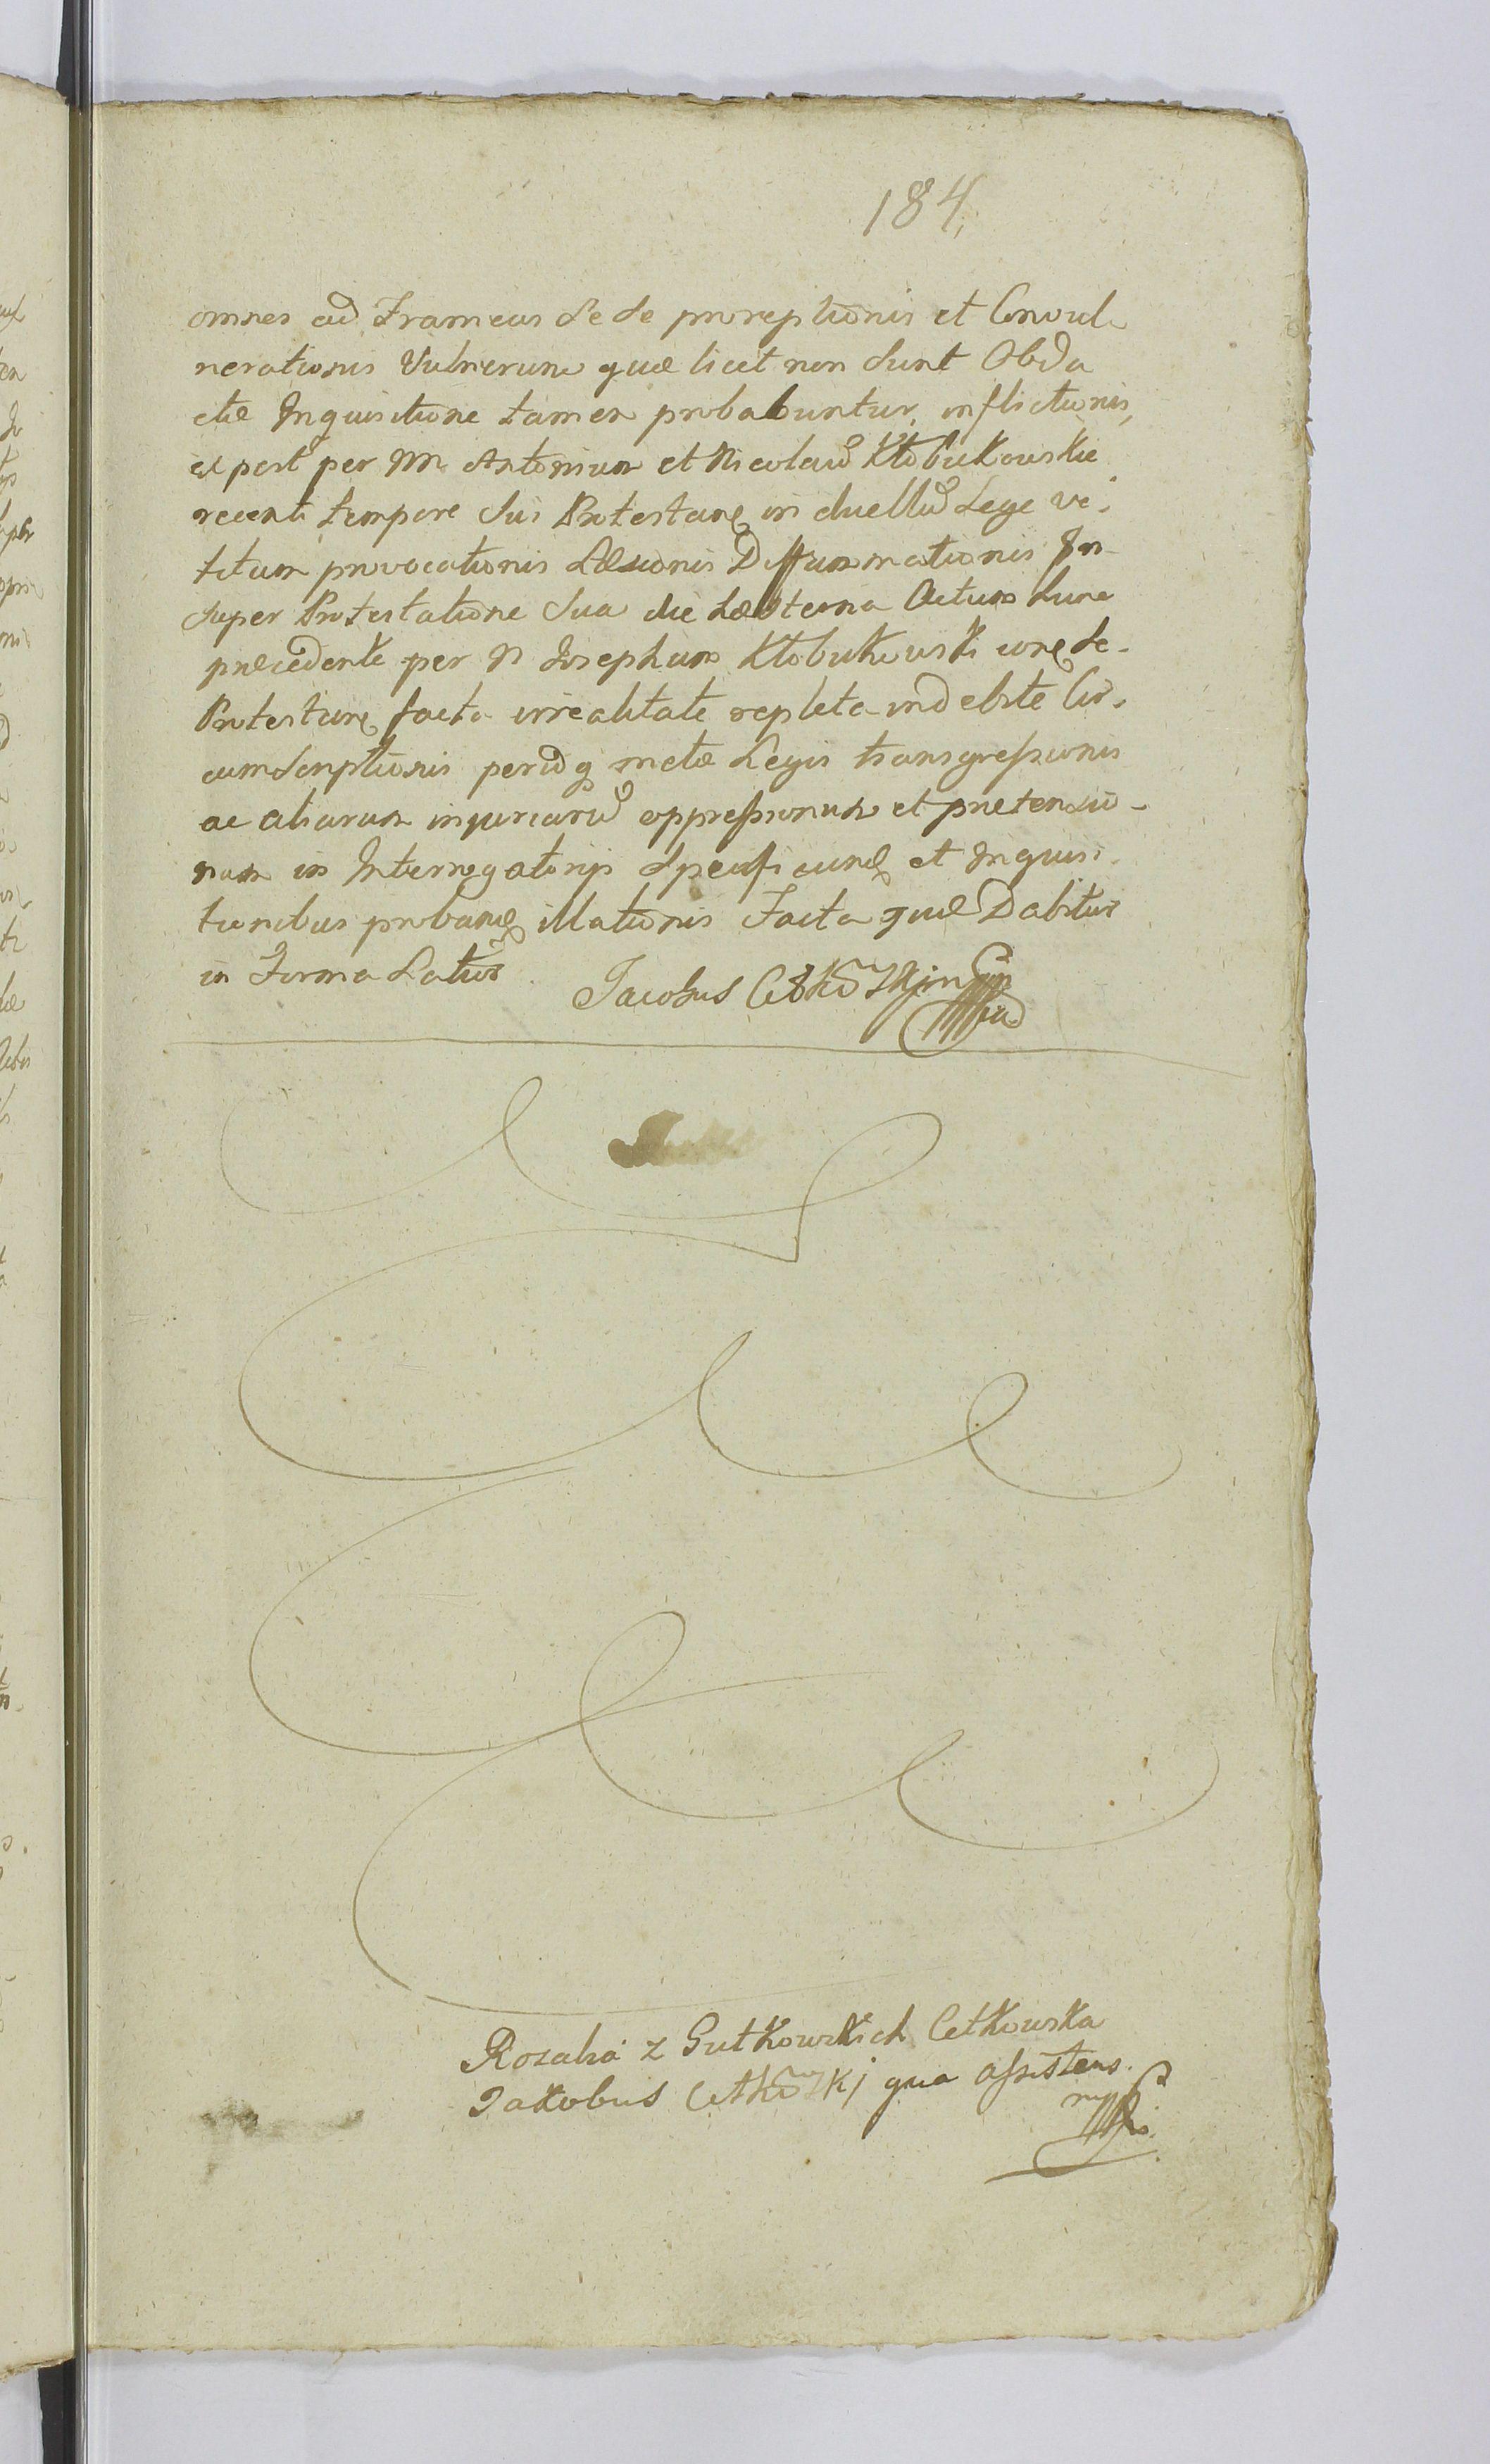 184.
omnes ad Frameas Se Se proreptionis et Convul-
nerationis Vulnerum quæ licet non Sunt Obda
ctæ Inquisitione tamen probabuntur inflictionis,
ex post per MM Antonium et Nicolaũ Kłobukowskie
recenti tempore Sui Protestanẽ in duellũ Lege ve-
titum provocationis Læsionis Diffammationis In-
super Protestatione Sua die hesterna Actum hunc
præcedente per M Josephum Kłobukowski conẽ Se-
Protestanẽ facta irrealitate repleta indebite Cir-
cumscriptionis periõq metæ Legis transgressionis
ac aliarum injuriarũ oppressionum et prætensio-
num in Interrogatorijs Specificanẽ et Inquisi-
tionibus probanẽ illationis Facta quæ Dabitur
in Forma Latior Jacobus Cetkõskj mpp
Rozalia z Gutkowskich Cetkowska
Jakobus Cetkõskj qua assistens
mpp